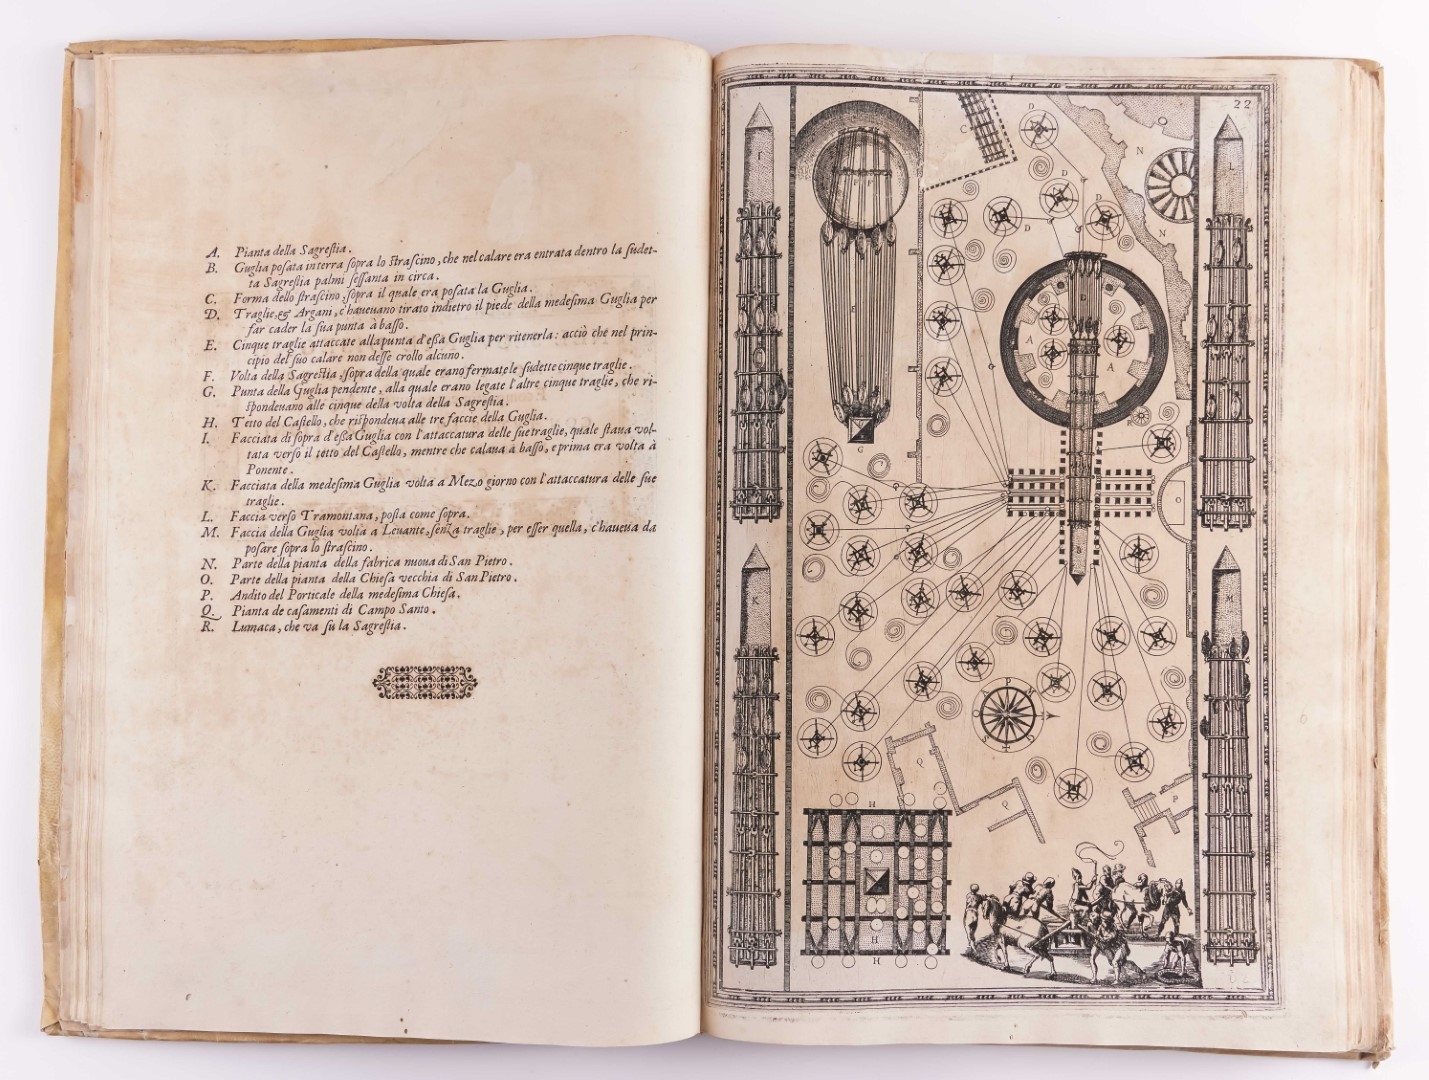 A. Pianta della Sagreſtia.
B. Guglia poſata in terra ſopra lo ſtraſcino, che nel calare era entrata dentro la ſudet-
ta Sagreſtia palmi ſeſſanta in circa.
C. Forma dello ſtraſcino, ſopra il quale era poſata la Guglia.
D. Traglie, & Argani, c'haueuano tirato indietro il piede della medeſima Guglia per
far cader la ſua punta à baſſo.
E. Cinque traglie attaccate alla punta d'eſſa Guglia per ritenerla: acciò che nel prin-
cipio del ſuo calare non deſſe crollo alcuno.
F. Volta della Sagreſtia, ſopra della quale erano fermate le ſudette cinque traglie.
G. Punta della Guglia pendente, alla quale erano legate l'altre cinque traglie, che ri-
ſpondeuano alle cinque della volta della Sagreſtia.
H. Tetto del Caſtello, che riſpondeua alle tre faccie della Guglia.
I. Facciata di ſopra d'eſſa Guglia con l'attaccatura delle ſue traglie, quale ſtaua vol-
tata verſo il tetto del Caſtello, mentre che calaua à baſſo, e prima era volta à
Ponente.
K. Facciata della medeſima Guglia volta a Mezo giorno con l'attaccatura delle ſue
traglie.
L. Faccia verſo Tramontana, poſta come ſopra.
M. Faccia della Guglia volta à Leuante, ſenza traglie, per eſſer quella, c'haueua da
poſare ſopra lo ſtraſcino.
N. Parte della pianta della fabrica nuoua di San Pietro.
O. Parte della pianta della Chieſa vecchia di San Pietro.
P. Andito del Porticale della medeſima Chieſa.
Q. Pianta de caſamenti di Campo Santo.
R. Lumaca, che va ſu la Sagreſtia.
22
I
F
E
G
C
D
D
D
D
O
N
N
L
A
A
B
R
O
K
M
P
M
Q
Q
P
H
H
H